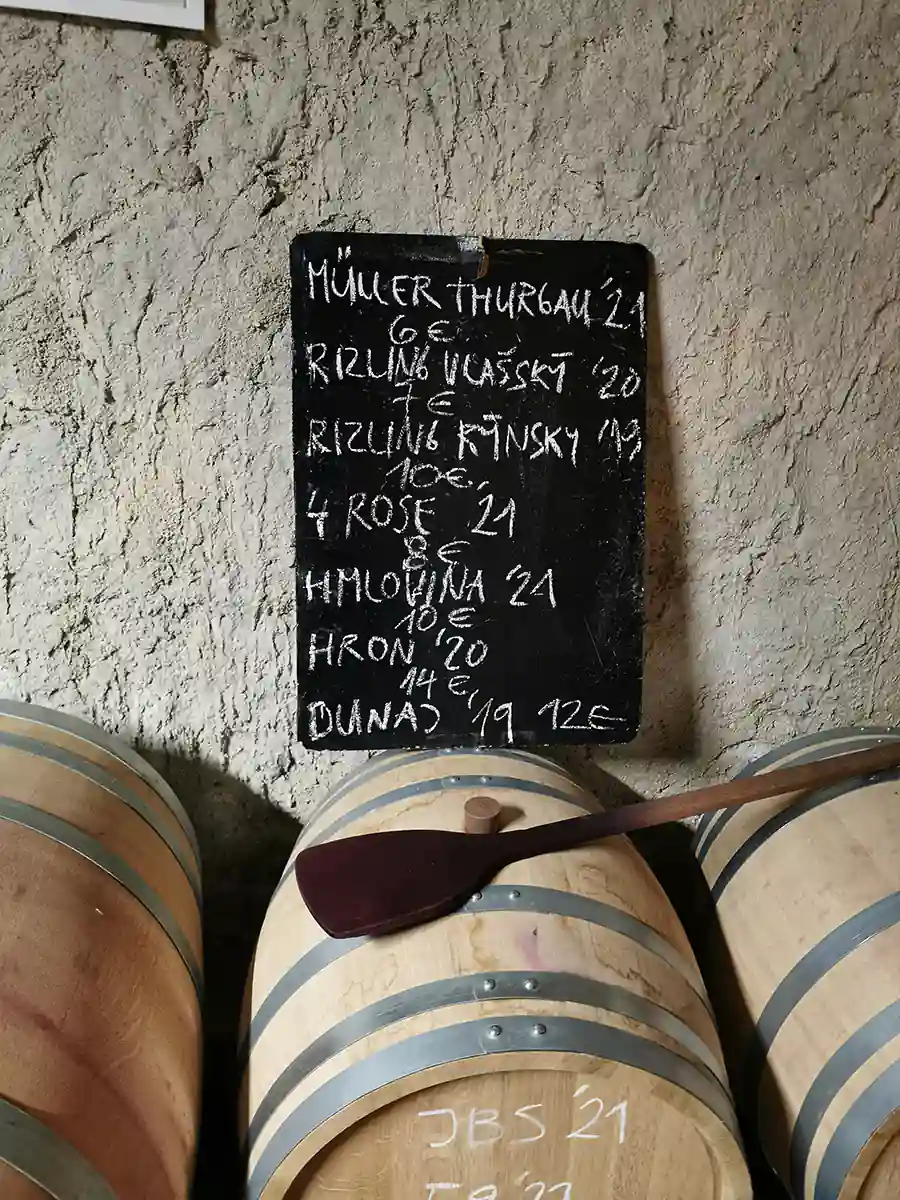 MÜLLER THURGAU '21
6€
RIZLING VLAŠSKÝ '20
7€
RIZLING RÝNSKY '19
10€
4 ROSE '21
8€
HMLOVINA '21
10€
HRON '20
14€
DUNAJ '19 12€
JBS '21